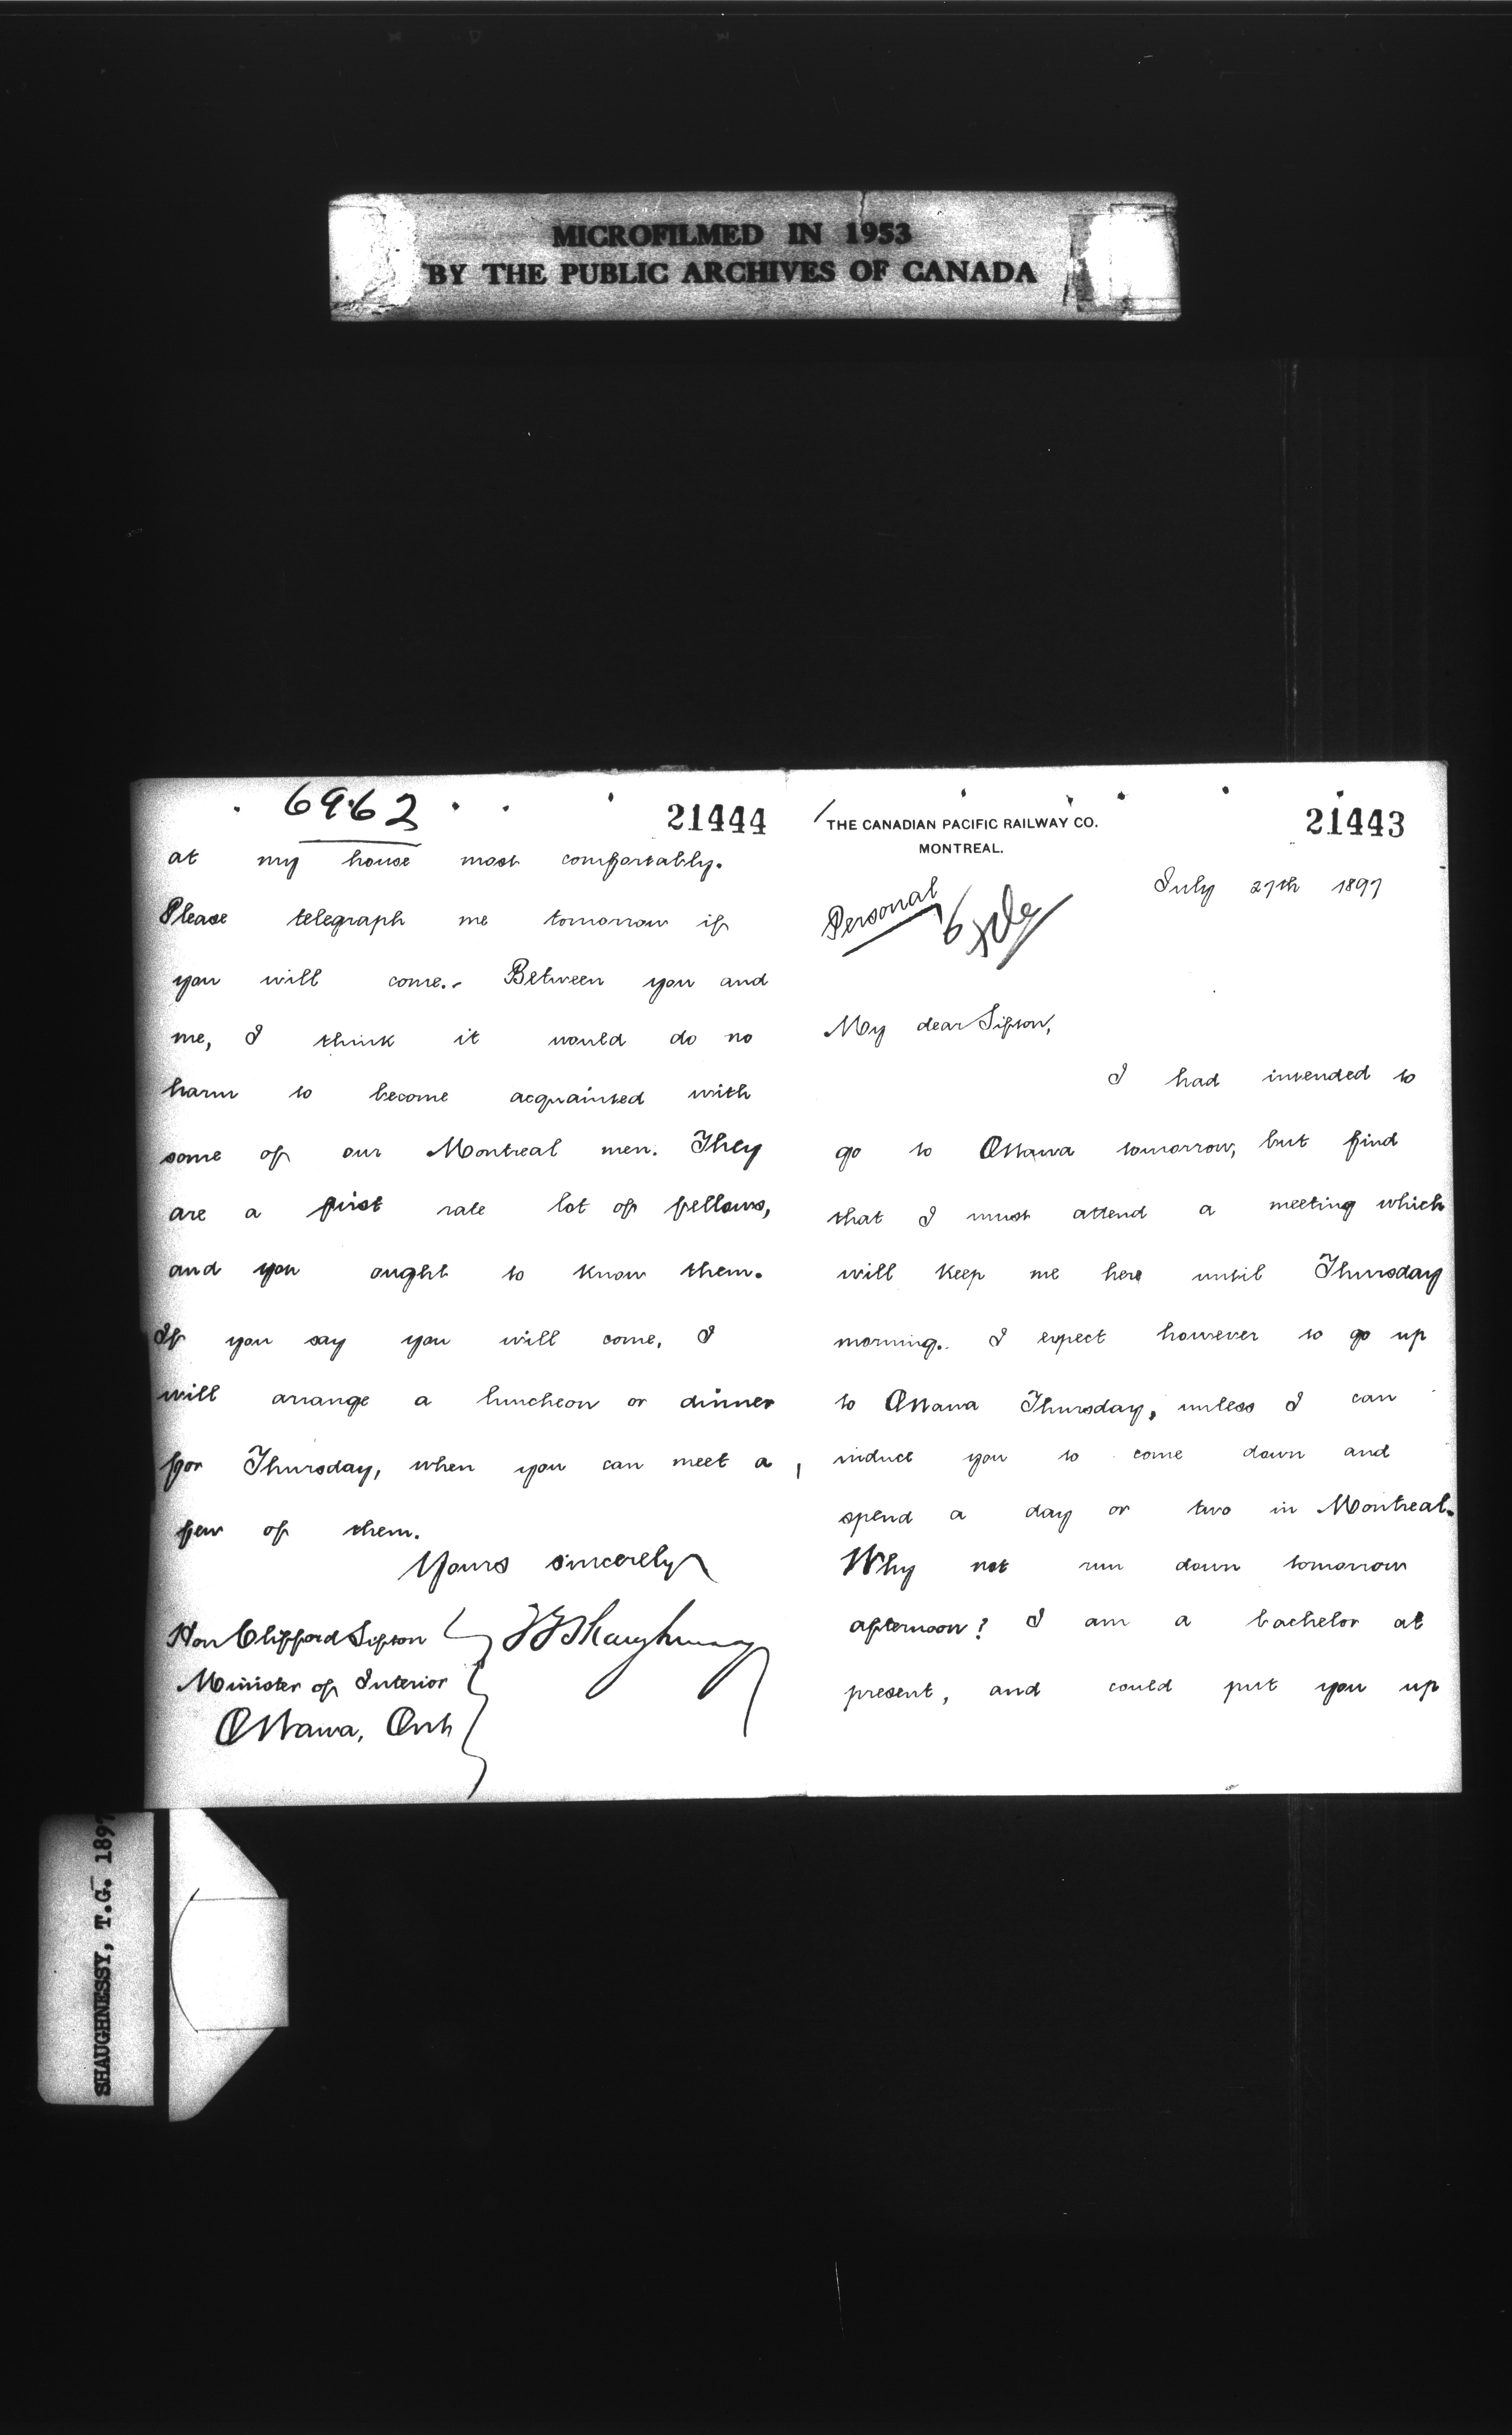 MICROFILMED IN 1953
BY THE PUBLIC ARCHIVES OF CANADA
21443
THE CANADIAN PACIFIC RAILWAY CO.
MONTREAL.
July 27th 1897
Personal
My dear Sifton,
I had intended to
go to Ottawa tomorrow, but find
that I must attend a meeting which
will keep me here until Thursday
morning. I expect however to go up
to Ottawa Thursday, unless I can
induce you to come down and
spend a day or two in Montreal.
Why not run down tomorrow
afternoon? I am a bachelor at
present, and could put you up
6962
21444
at my house most comfortably.
Please telegraph me tomorrow if
you will come.- Between you and
me, I think it would do no
harm to become acquainted with
some of our Montreal men. They
are a first rate lot of fellows,
and you ought to know them.
If you say you will come, I
will arrange a luncheon or dinner
for Thursday, when you can meet a
few of them.
Yours sincerely
TGShaughnessy
Hon Clifford Sifton
Minister of Interior
Ottawa, Ont
SHAUGHNESSY, T.G. 1897